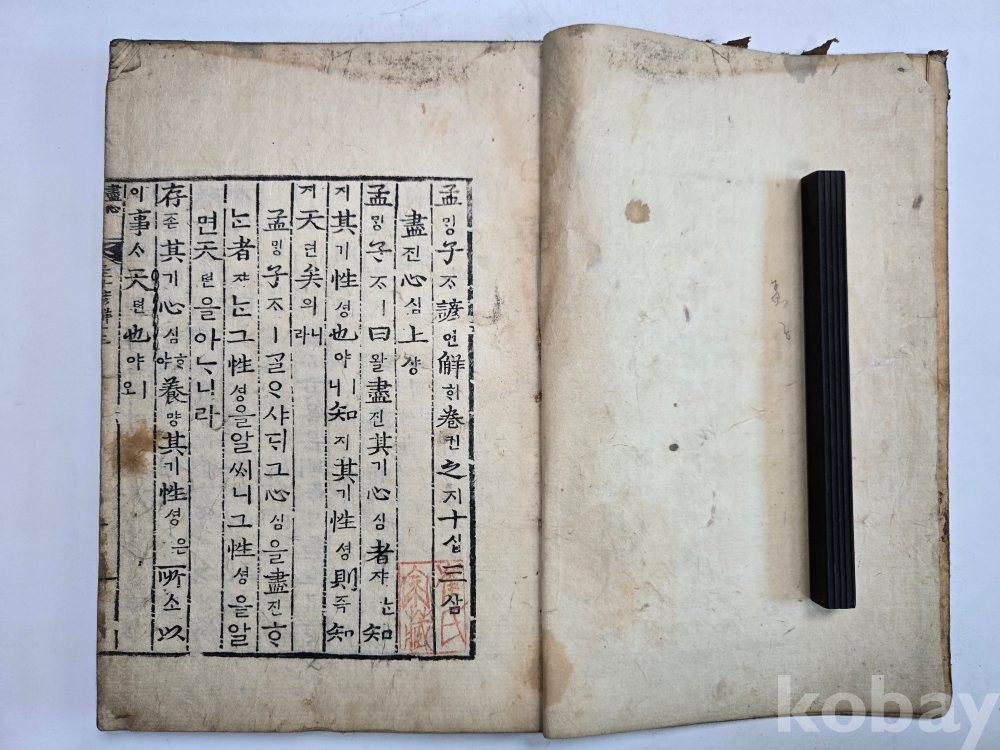 孟ᄆᆡᆼ子ᄌᆞ諺언解ᄒᆡ卷권之지十십三삼
盡진心심上샹
孟ᄆᆡᆼ子ᄌᆞㅣ曰왈盡진其기心심者쟈ᄂᆞᆫ知
지其기性셩也야ㅣ니知지其기性셩則즉知
지天텬矣의니라
孟ᄆᆡᆼ子ᄌᆞㅣᄀᆞᆯᄋᆞ샤ᄃᆡ그心심을盡진ᄒᆞ
ᄂᆞᆫ者쟈ᄂᆞᆫ그性셩을알씨니그性셩을알
면天텬을아ᄂᆞ니라
存존其기心심ᄒᆞ야養양其기性셩은所소以
이事ᄉᆞ天텬也야ㅣ오
盡心
氏
家藏
kobay